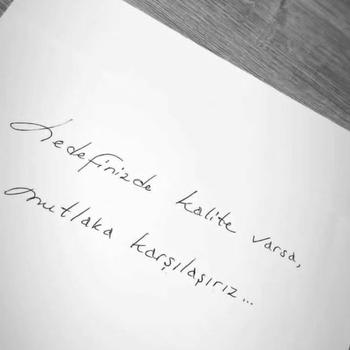 Hedefinizde kalite varsa,
mutlaka karşılaşırız...